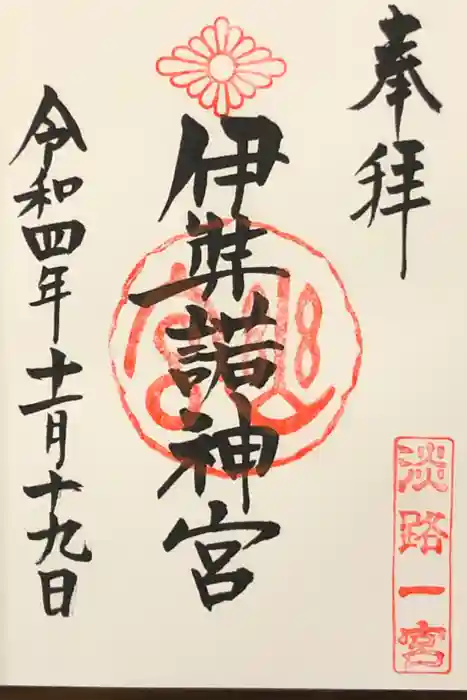 奉拝
淡路一宮
伊弉諾神宮
令和四年十二月十九日